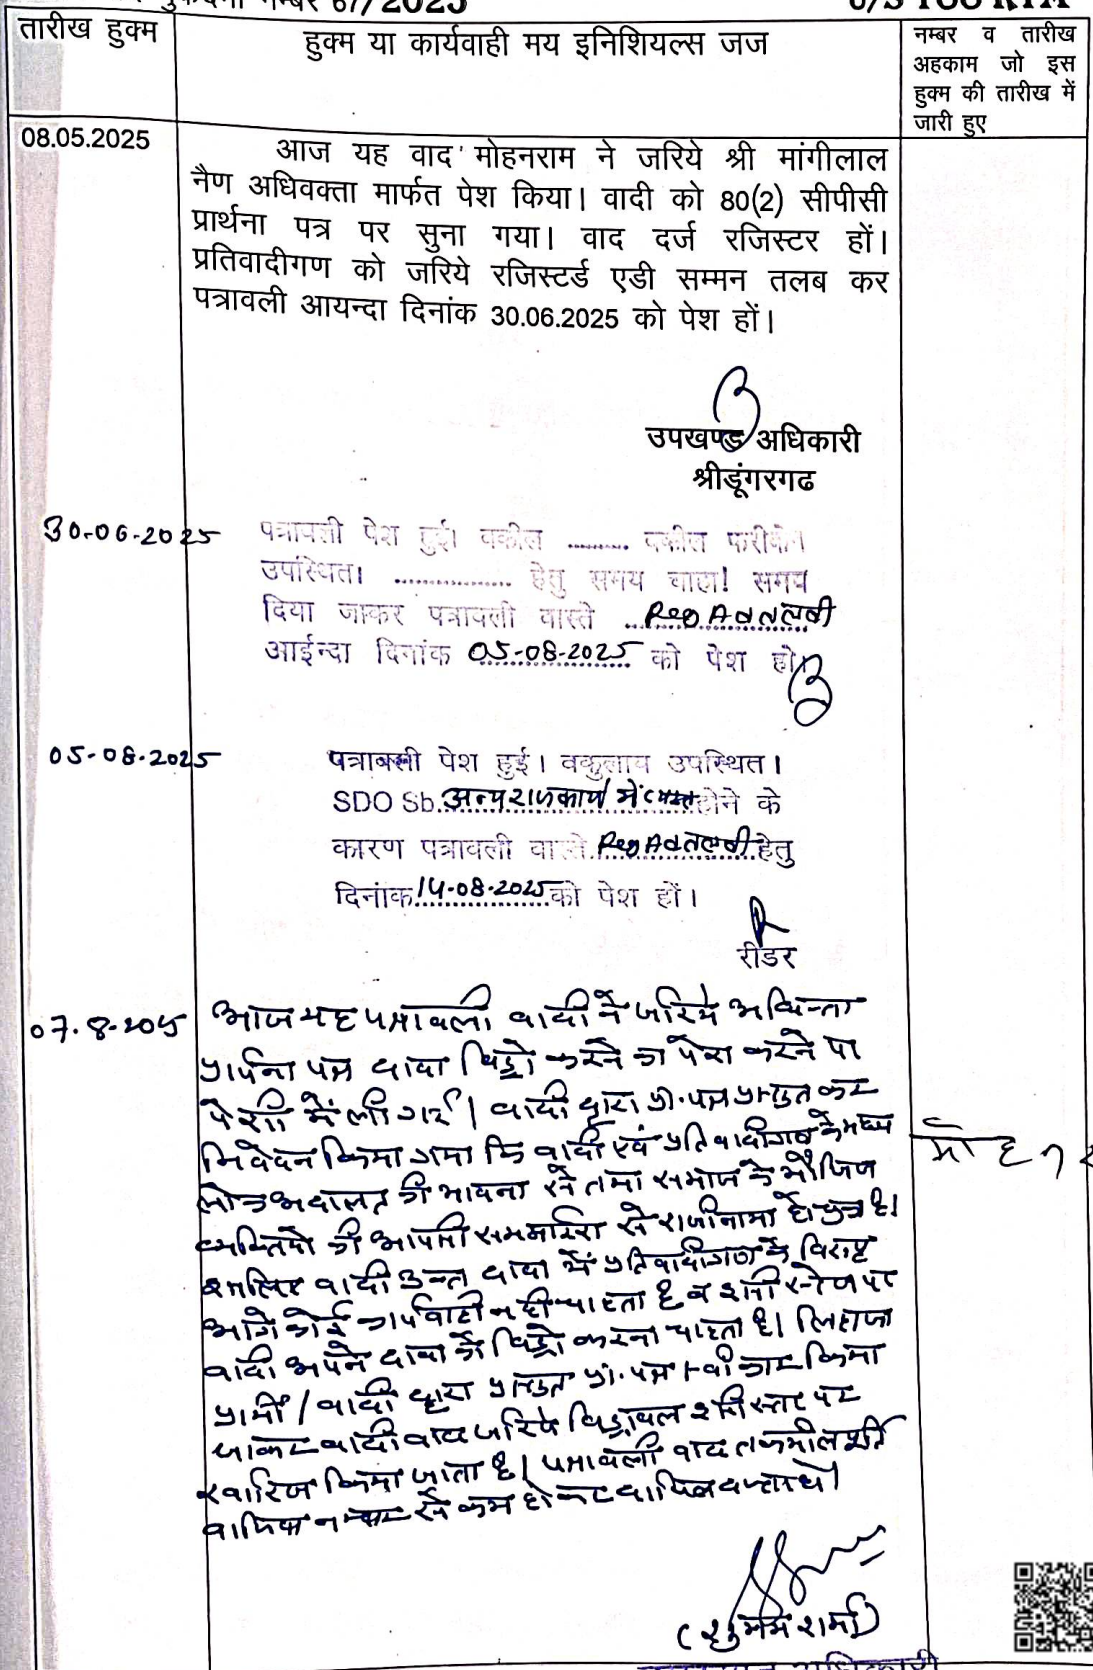 मुकदमा नम्बर 67/2025
U/S 188 RTA
तारीख हुक्म
हुक्म या कार्यवाही मय इनिशियल्स जज
नम्बर व तारीख
अहकाम जो इस
हुक्म की तारीख में
जारी हुए
08.05.2025
आज यह वाद मोहनराम ने जरिये श्री मांगीलाल
नैण अधिवक्ता मार्फत पेश किया। वादी को 80(2) सीपीसी
प्रार्थना पत्र पर सुना गया। वाद दर्ज रजिस्टर हों।
प्रतिवादीगण को जरिये रजिस्टर्ड एडी सम्मन तलब कर
पत्रावली आयन्दा दिनांक 30.06.2025 को पेश हों।
उपखण्ड अधिकारी
श्रीडूंगरगढ
30-06-2025
पत्रावली पेश हुई। वकील ......... वकील फरीकेन
उपस्थित। ................. हेतु समय चाहा! समय
दिया जाकर पत्रावली वास्ते Reg Ad तलबी
आईन्दा दिनांक 05-08-2025 को पेश हो
05-08-2025
पत्रावली पेश हुई। वकुलाय उपस्थित।
SDO Sb. अन्य राजकार्य में व्यस्त होने के
कारण पत्रावली वास्ते Reg Ad तलबी हेतु
दिनांक 14-08-2025 को पेश हों।
रीडर
07.8-2025
आज यह पत्रावली वादी ने जरिये अधिवक्ता
प्रार्थना पत्र दावा विड्रो करने का पेश करने पर
पेशी में ली गई। वादी द्वारा प्रा.पत्र प्रस्तुत कर
निवेदन किया गया कि वादी एवं प्रतिवादीगण के मध्य
लोक अदालत की भावना से तथा समाज के मौजिज
व्यक्तियो की आपसी समझाईश से राजीनामा हो चुका है।
इसलिए वादी उक्त दावा में प्रतिवादीगण के विरुद्ध
आगे कोई कार्यवाही नही चाहता है व इसी स्टेज पर
वादी अपने दावा को विड्रो करना चाहता है। लिहाजा
प्रार्थी/वादी द्वारा प्रस्तुत प्रा.पत्र स्वीकार किया
जाकर वादी वाद जरिये विड्रावल इसी स्तर पर
खारिज किया जाता है। पत्रावली बाद तकमील शर्त
दाखिल नम्बर से कम होकर दाखिल दफ्तर हो।
मोहनर
(शुभम शर्मा)
उपखण्ड अधिकारी